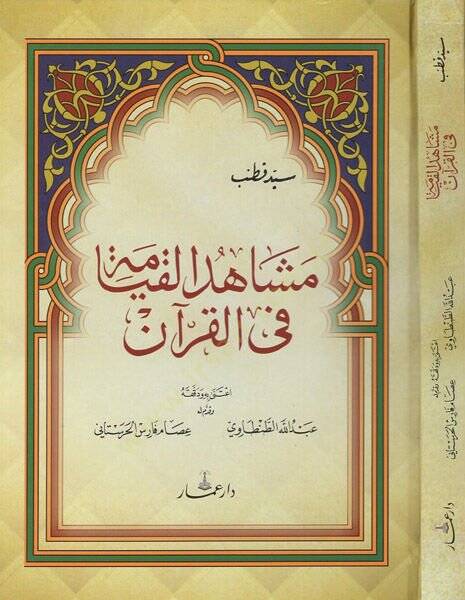 سيد قطب
مشاهد القيامة
في القرآن
اعتنى به ودققه
وقدم له
عبد الله الطنطاوي
عصام فارس الحرستاني
دار عمار
سيد قطب
مشاهد القيامة
في القرآن
اعتنى به ودققه وقدم له
عبد الله الطنطاوي
عصام فارس الحرستاني
دار عمار